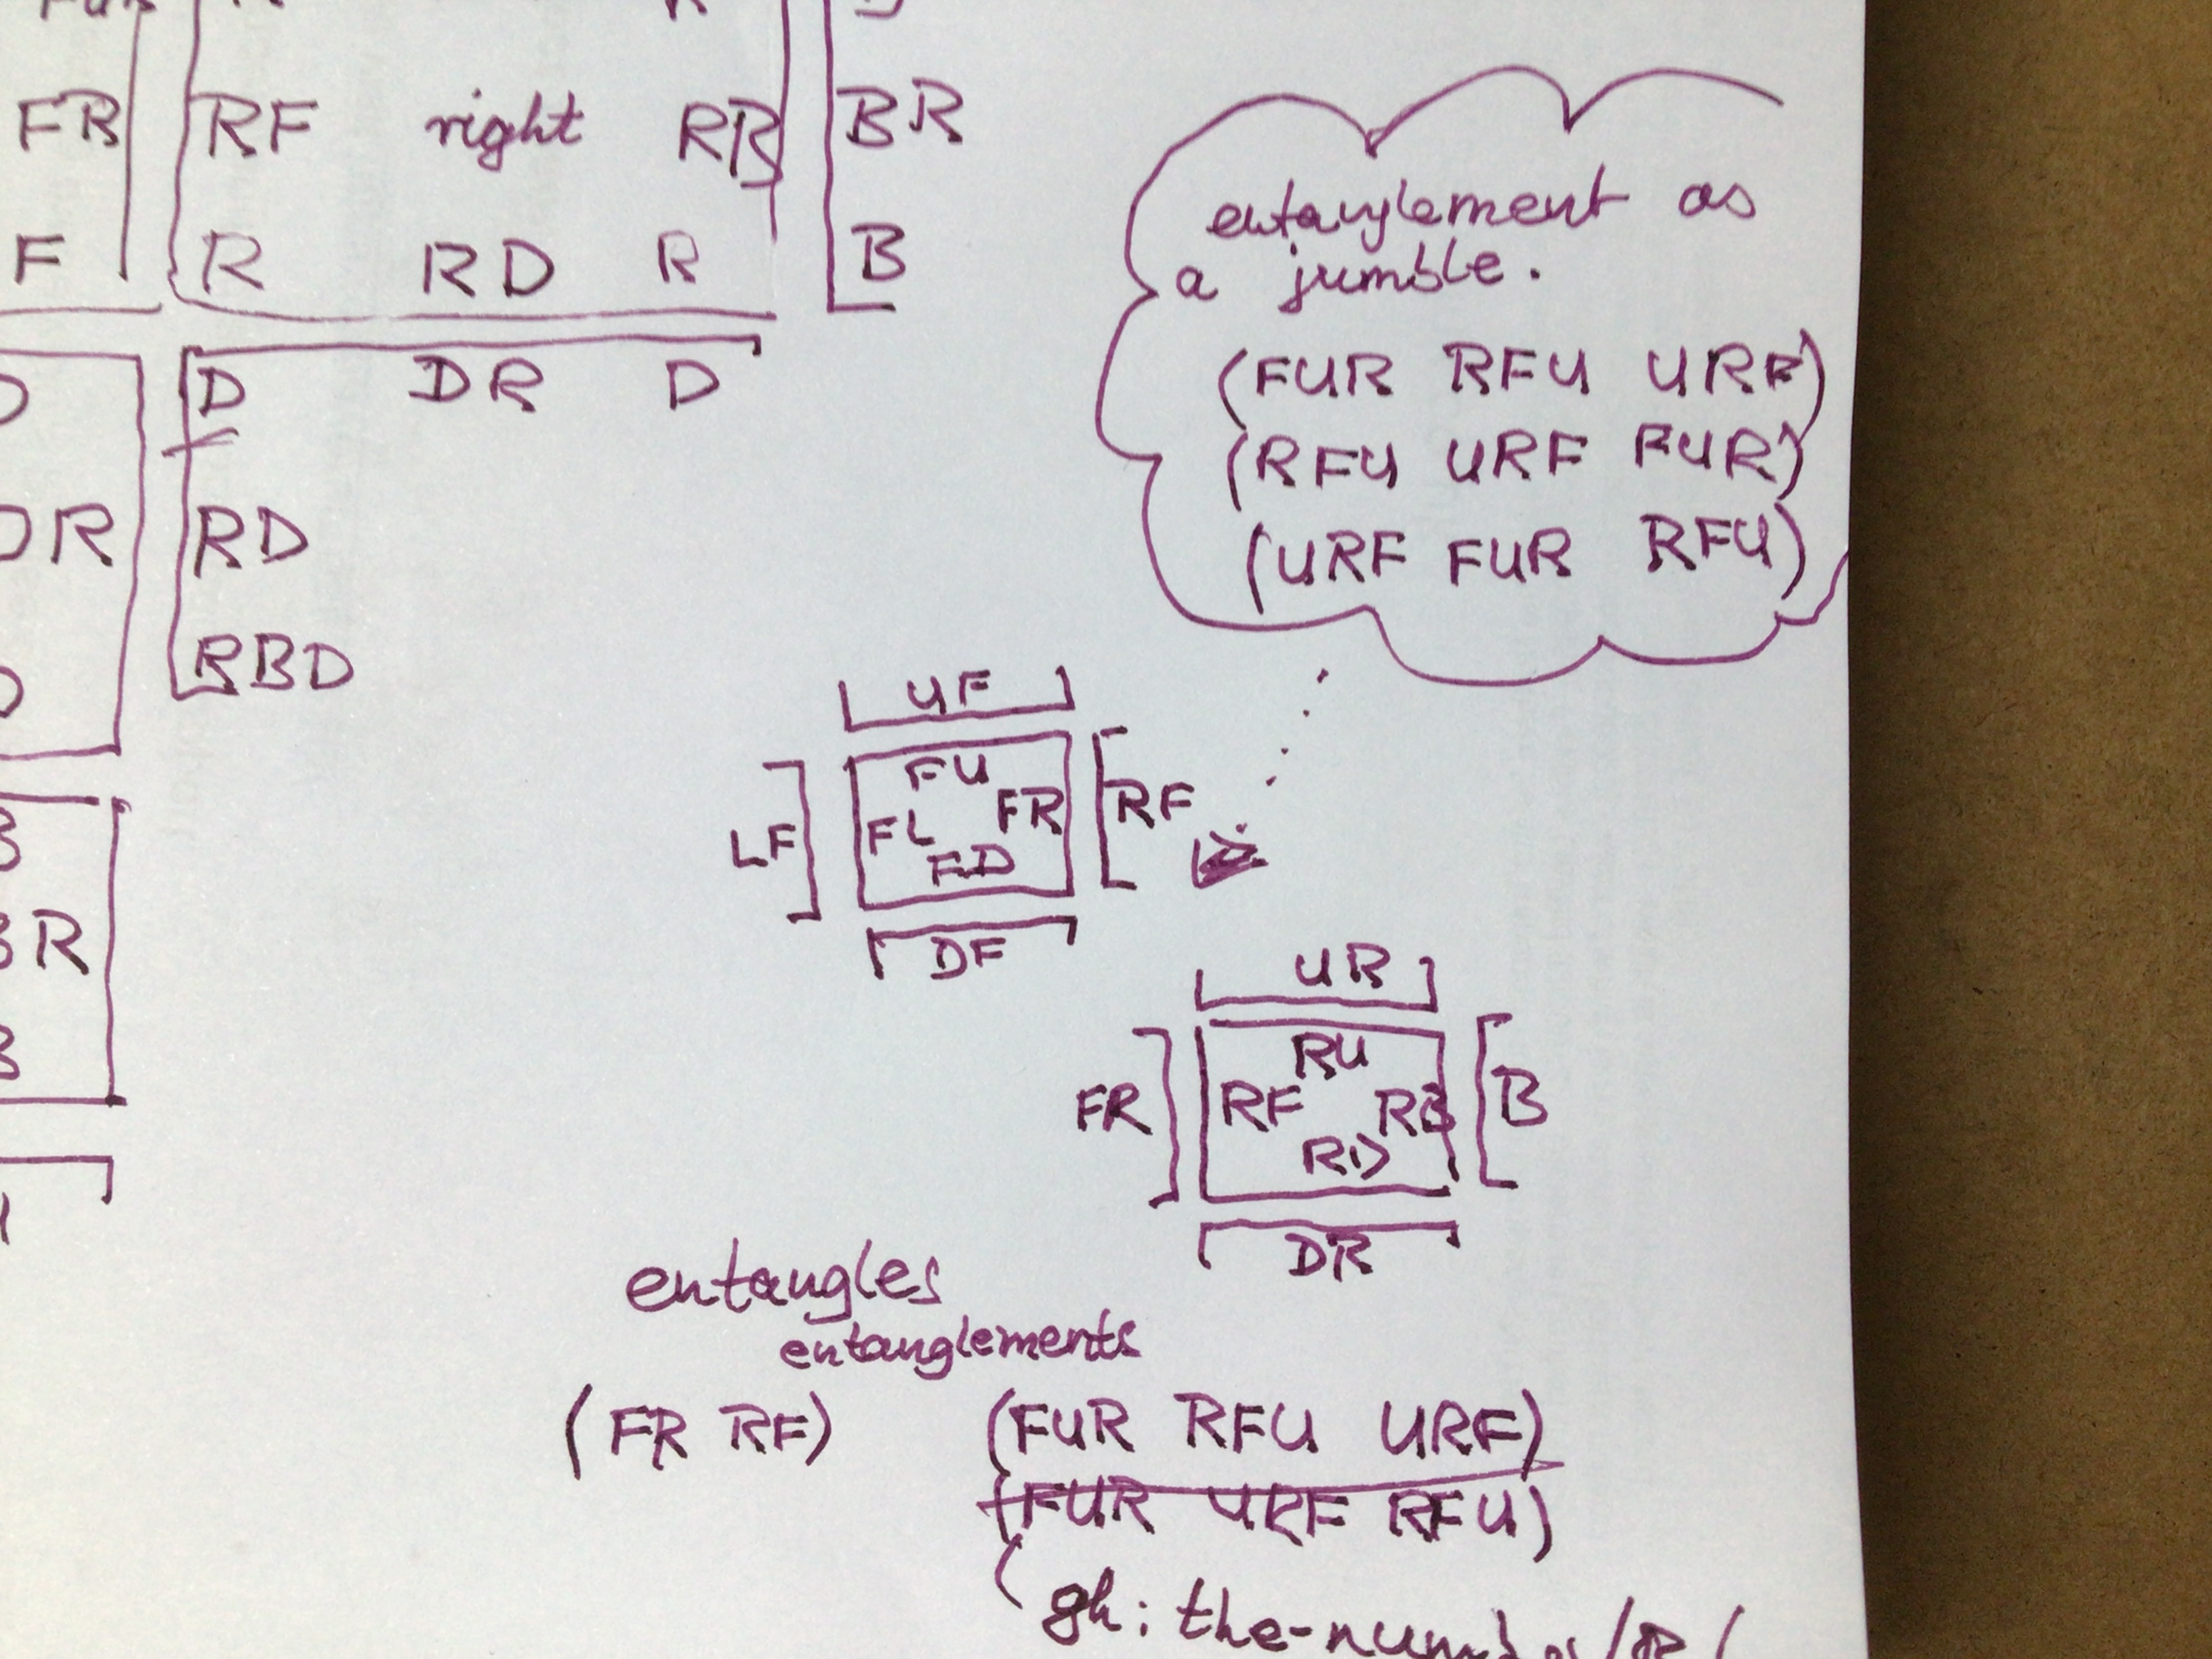 FR RF right RB BR
F R RD R B
D DR D
DR RD
RBD
BR
entanglement as
a jumble.
(FUR RFU URF)
(RFU URF FUR)
(URF FUR RFU)
UF
FU
LF FL FR RF
FD
DF
UR
RU
FR RF RB B
RD
DR
entangles
entanglements
(FR RF) (FUR RFU URF)
(FUR URF RFU)
(gh: the-